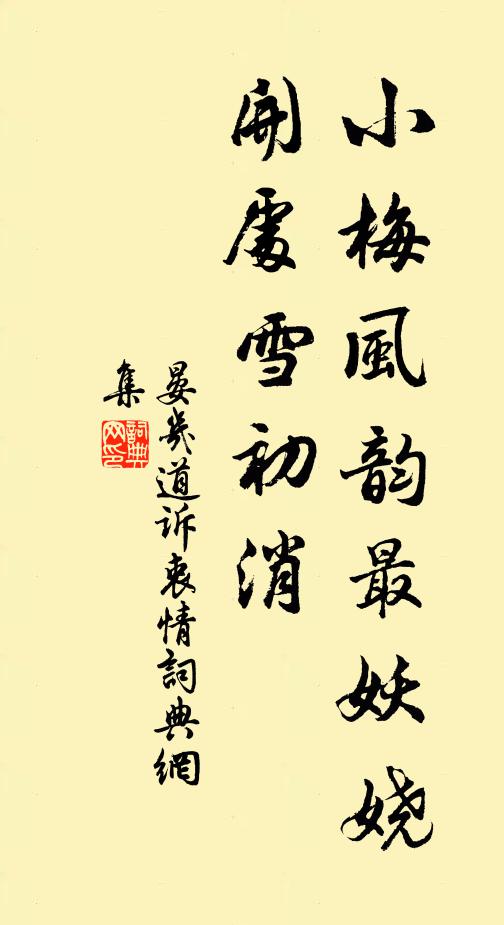 小梅風韵最妖娆
開處雪初消
晏幾道訴衷情詞典網
集
詞典网印